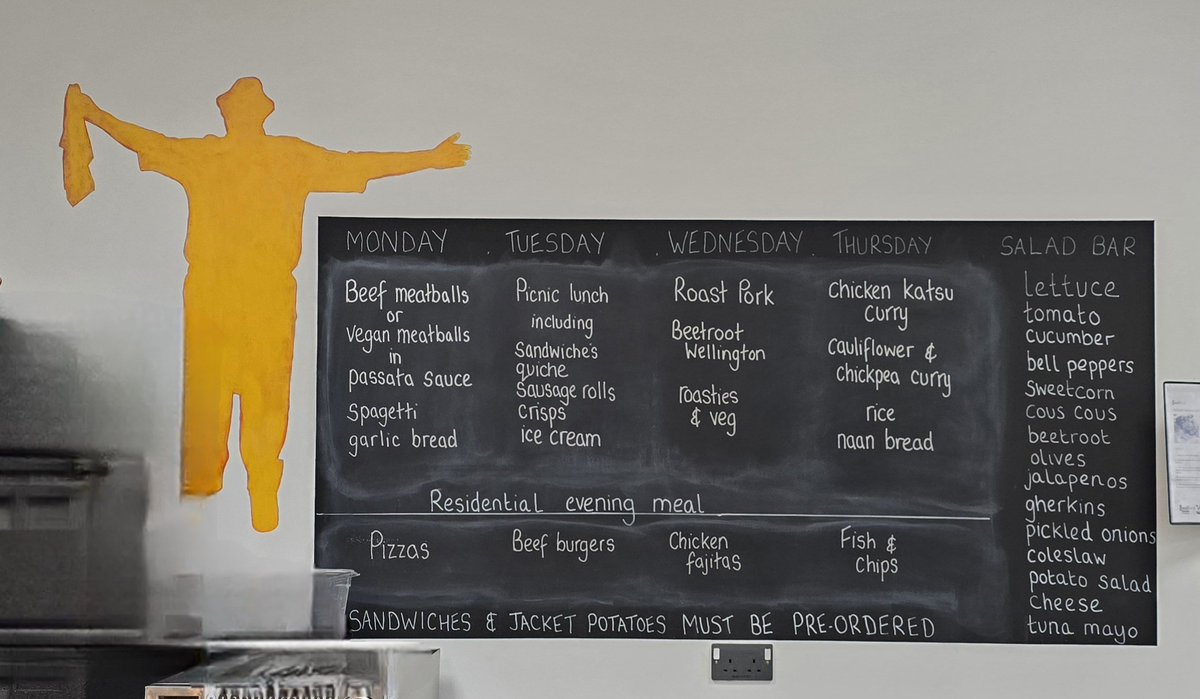 MONDAY
Beef meatballs
or
Vegan meatballs
in
passata sauce
Spagetti
garlic bread
TUESDAY
Picnic lunch
including
Sandwiche's
quiche
Sausage rolls
Crisps
ice cream
WEDNESDAY
Roast Pork
Beetroot
Wellington
roasties
& veg
THURSDAY
Chicken Katsu
Curry
Cauliflower &
chickpea curry
rice
naan bread
Residential evening meal
Pizzas
Beef burgers
Chicken
fajitas
Fish &
Chips
SANDWICHES & JACKET POTATOES MUST BE PRE-ORDERED
SALAD BAR
lettuce
tomato
cucumber
bell peppers
Sweetcorn
Cous cous
beetroot
olives
jalapenos
gherkins
pickled onions
coleslaw
potato salad
Cheese
tuna mayo